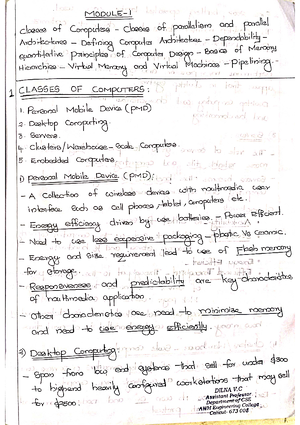 MODULE-1
Classes of Computers - Classes of parallelism and parallel
Architectures - Defining Computer Architecture - Dependability -
quantitative Principles of Computer Design - Basics of Memory
Hierarchies - Virtual Memory and Virtual Machines - Pipelining.
1 CLASSES OF COMPUTERS:
1. Personal Mobile Device (PMD)
2. Desktop Computing.
3. Servers.
4. Clusters/Warehouse-Scale Computers.
5. Embedded Computers.
1) Personal Mobile Device (PMD):
- A Collection of wireless devices with multimedia user
interface such as Cell phones, tablet, computers etc.
- Energy efficiency driven by use batteries. - Power Efficient.
- Need to use less expensive packaging - plastic Vs ceramic.
- Energy and Size requirement lead to use of Flash memory
for storage.
- Responsiveness and predictability are key characteristics
of multimedia application
- Other characteristics are need to minimize memory
and need to use energy efficiently.
2) Desktop Computing
- Span from low end systems that sell for under $300
to highend heavily configured workstations that may sell
for $2500.
DILNA V.C
Assistant Professor
Department of CSE
AWH Engineering College
Calicut- 673 008